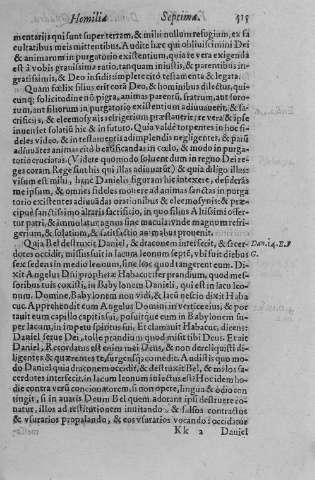 Homiliæ Septima. 515
mentarijs qui sunt super terram, & mihi nullum refugium, ex fa
cultatibus meis mittentibus. Audite hæc qui obliuiscimini Dei
& animarum in purgatorio existentium, quia te vera exigenda
est à vobis gratissima ratio, tanquam iniustis, & parentibus in-
gratissimis, & Deo insidis implete cito testamenta & legata.
Quam fœlix filius erit corā Deo, & hominibus dilectus, qui-
cunq; solicitudine nō pigra, animas parentū, fratrum, aut soro-
rum, aut filiorum in purgatorio existentium adiuuauerit, & sa-
crificijs, & eleemosynis refrigerium præstauerit, & verè & ipse
inueniet solatiū hic & in futuro. Quia valdè torpentes in hoc fi-
deles video, & in testamentis adimplendis negligentes, & paru
adiuuātæ animæ citò beatificandas in cœlo, & modo in purga-
torio cruciatas. (Videte quomodo soluent dum in regno Dei re-
ges coram Rege sint his qui illas adiuuātur) & quia diligo illas:
visum est mihi, hanc Danielis figuram hic intexere, desiderās
me ipsum, & omnes fideles mouere ad animas sanctas in purga
torio existentes adiuuādas orationibus & eleemosynis: & præ-
cipuè sanctissimo altaris sacrificio, in quo filius Altissimi offer-
tur patri, & immolatur agnus sine macula: vnde magnum refri-
gerium, & solatium, & satisfactio animabus prouenit.
Quia Bel destruxit Daniel, & draconem interfecit, & sacer-
dotes occidit, missus fuit in lacum leonum septē, vbi fuit diebus
sex sedens in medio leonum, sine hoc quod tangerent eum. Di-
xit Angelus Dñi prophetæ Habacuc: fer prandium, quod mes-
soribus tuis coxisti, in Babylonem Danieli, qui est in lacu leo-
num. Domine, Babylonem non vidi, & lacū nescio dixit Haba
cuc. Apprehendit eum Angelus Domini in vertice eius, & por
tauit eum capillo capitis sui, posuitque eum in Babylonem su-
per lacum, in impetu spiritus sui. Et clamauit Habacuc, dicens:
Daniel serue Dei, tolle prandium quod misit tibi Deus. Et ait
Daniel, Recordatus est enim mei Deus, & non dereliquisti di-
ligentes & quærentes te, surgensq; comedit. Audistis quo mo-
do Daniel quia draconem occidit, & destruxit Bel, & malos sa-
cerdotes interfecit, in lacum leonum iniectus est: Hoc idem ho
die contra verū concionatorem, si non opere, lingua & odio con
tingit, si in auaris Deum Bel quem adorant ipsi destruere co-
natur, illos ad restitutionem inuitando, & falsos contractus
& vsurarios propalando, & eos vsurarios vocando: occidatur
Kk 2 Daniel
Dan. 14. E. F
G.